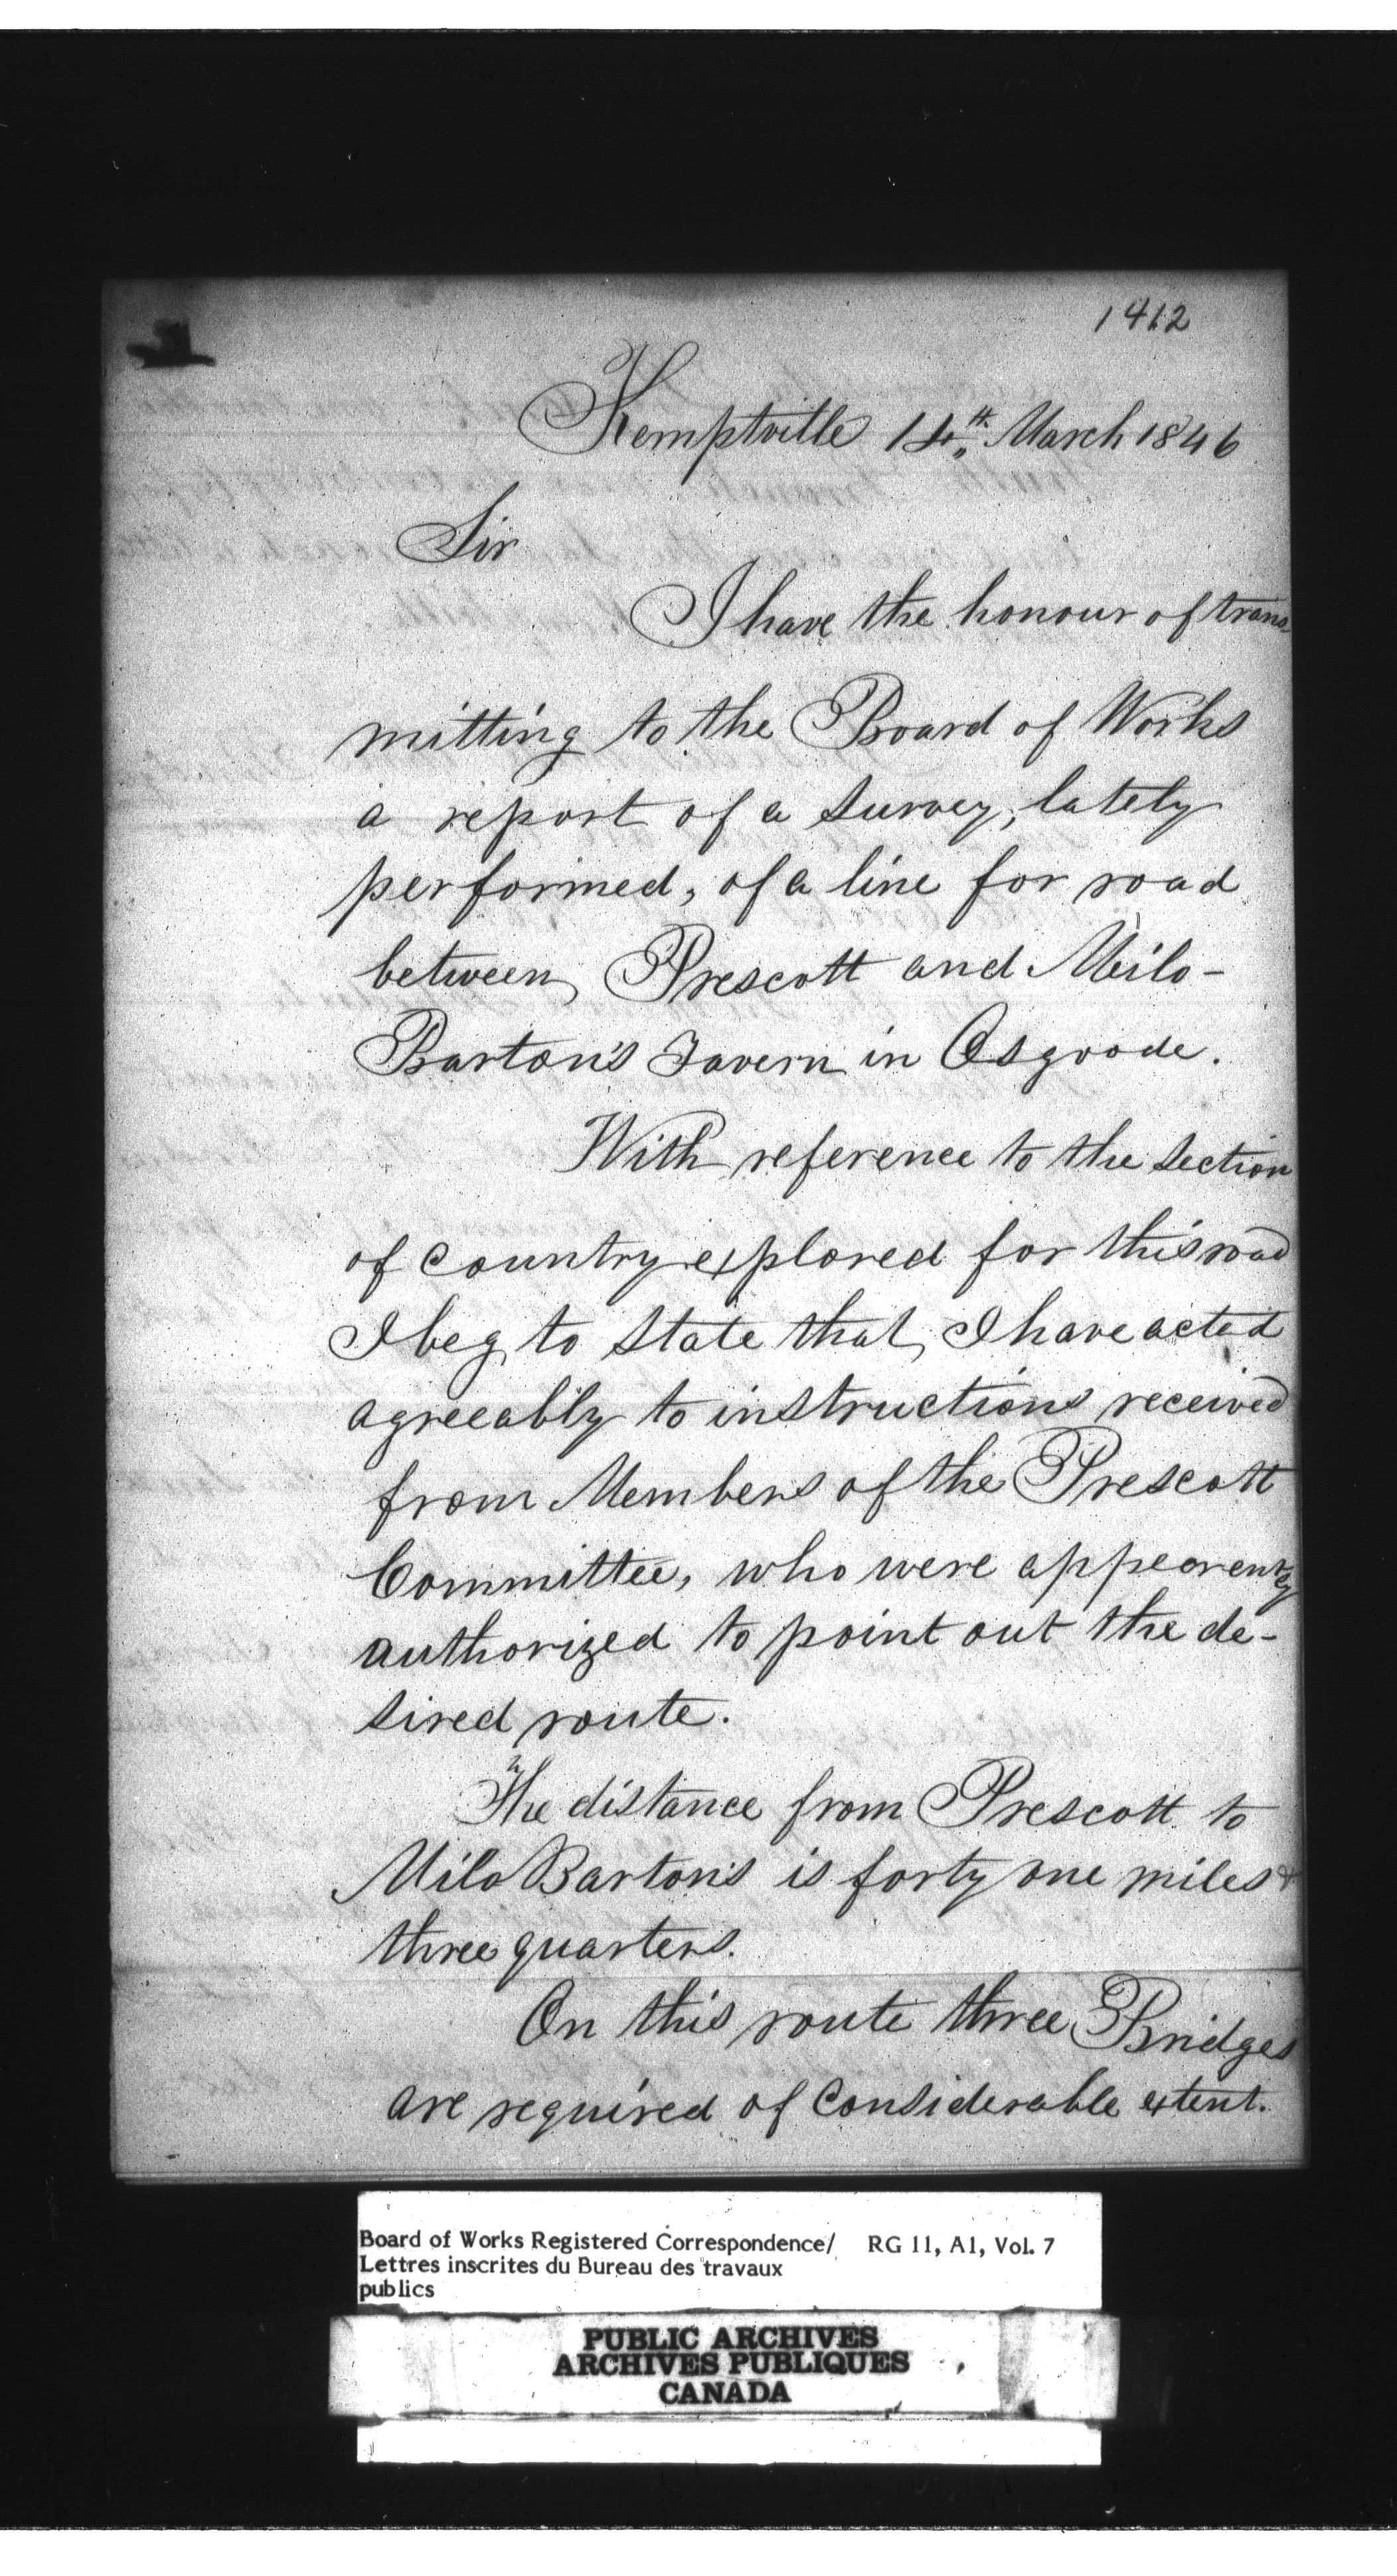 1412
Kemptville 14th March 1846
Sir
I have the honour of trans-
mitting to the Board of Works
a report of a survey, lately
performed, of a line for road
between Prescott and Milo-
Barton's Tavern in Osgoode.
With reference to the section
of country explored for this road
I beg to state that, I have acted
agreeably to instructions received
from Members of the Prescott
Committee, who were appearently
authorized to point out the de-
sired route.
The distance from Prescott to
Milo Barton's is forty one miles &
three quarters.
On this route three Bridges
are required of considerable extent.
Board of Works Registered Correspondence/ RG 11, A1, Vol. 7
Lettres inscrites du Bureau des travaux
publics
PUBLIC ARCHIVES
ARCHIVES PUBLIQUES
CANADA